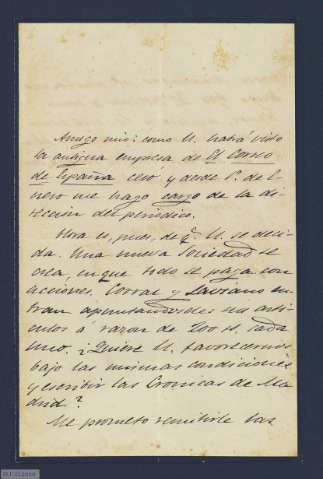 Amigo mio: como V. habrá visto
la antigua empresa de El Correo
de España cesó y desde 1º. de E-
nero me hago cargo de la di-
rección del periódico.
Hora es, pues, de q.e V. se deci-
da. Una nueva Sociedad se
crea, en que todo se paga con
acciones. Corral y Laviano en-
tran apuntandoseles sus artí-
culos á razon de 200 rs. cada
uno. ¿Quiere V. favorecernos
bajo las mismas condiciones
y escribir las Crónicas de Ma-
drid?
Me prometo remitirle las